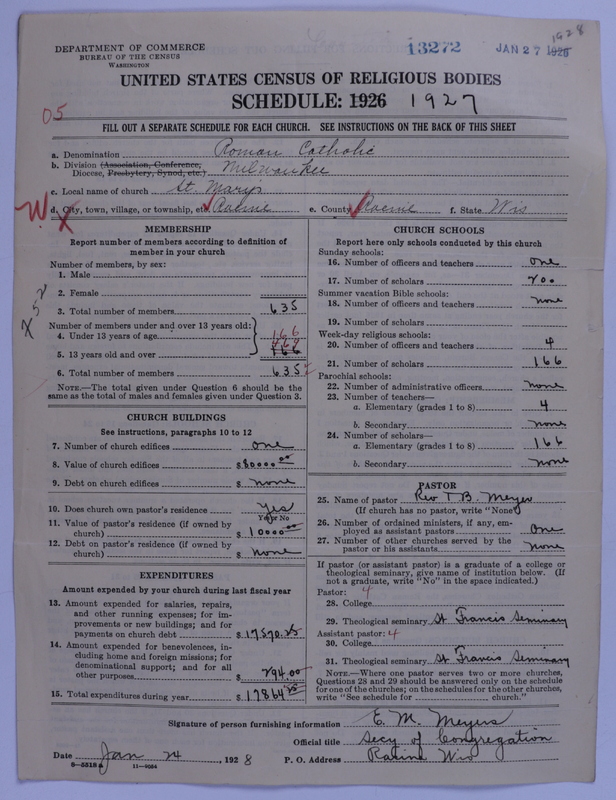 1928
13272 JAN 27 1926
DEPARTMENT OF COMMERCE
BUREAU OF THE CENSUS
WASHINGTON
UNITED STATES CENSUS OF RELIGIOUS BODIES
SCHEDULE: 1926 1927
05
FILL OUT A SEPARATE SCHEDULE FOR EACH CHURCH. SEE INSTRUCTIONS ON THE BACK OF THIS SHEET
a. Denomination Roman Catholic
b. Division (Association, Conference, Diocese, Presbytery, Synod, etc.) Milwaukee
c. Local name of church St. Mary's
W. X
d. City, town, village, or township, etc. Racine e. County Racine f. State Wis
MEMBERSHIP
Report number of members according to definition of
member in your church
Number of members, by sex:
1. Male
2. Female
3. Total number of members 635
Number of members under and over 13 years old:
4. Under 13 years of age 166
5. 13 years old and over 166
6. Total number of members 635
NOTE.—The total given under Question 6 should be the
same as the total of males and females given under Question 3.
CHURCH BUILDINGS
See instructions, paragraphs 10 to 12
7. Number of church edifices one
8. Value of church edifices $80000.00
9. Debt on church edifices $ none
10. Does church own pastor's residence? yes
Yes or No
11. Value of pastor's residence (if owned by
church) $10000.00
12. Debt on pastor's residence (if owned by
church) $ none
EXPENDITURES
Amount expended by your church during last fiscal year
13. Amount expended for salaries, repairs,
and other running expenses; for im-
provements or new buildings; and for
payments on church debt $17570.25
14. Amount expended for benevolences, in-
cluding home and foreign missions; for
denominational support; and for all
other purposes $294.00
15. Total expenditures during year $17864.25
CHURCH SCHOOLS
Report here only schools conducted by this church
Sunday schools:
16. Number of officers and teachers one
17. Number of scholars 200
Summer vacation Bible schools:
18. Number of officers and teachers none
19. Number of scholars
Week-day religious schools:
20. Number of officers and teachers 4
21. Number of scholars 166
Parochial schools:
22. Number of administrative officers none
23. Number of teachers—
a. Elementary (grades 1 to 8) 4
b. Secondary none
24. Number of scholars—
a. Elementary (grades 1 to 8) 166
b. Secondary none
PASTOR
25. Name of pastor Rev T B. Meyer
(If church has no pastor, write "None")
26. Number of ordained ministers, if any, em-
ployed as assistant pastors one
27. Number of other churches served by the
pastor or his assistants none
If pastor (or assistant pastor) is a graduate of a college or
theological seminary, give name of institution below. (If
not a graduate, write "No" in the space indicated.)
Pastor: 4
28. College
29. Theological seminary St Francis Seminary
Assistant pastor: 4
30. College
31. Theological seminary St Francis Seminary
NOTE.—Where one pastor serves two or more churches,
Questions 28 and 29 should be answered only on the schedule
for one of the churches; on the schedules for the other churches,
write "See schedule for church."
Signature of person furnishing information E. M. Meyers
Official title Secy of Congregation
Date Jan 24, 1928 P. O. Address Racine Wis
11—9034